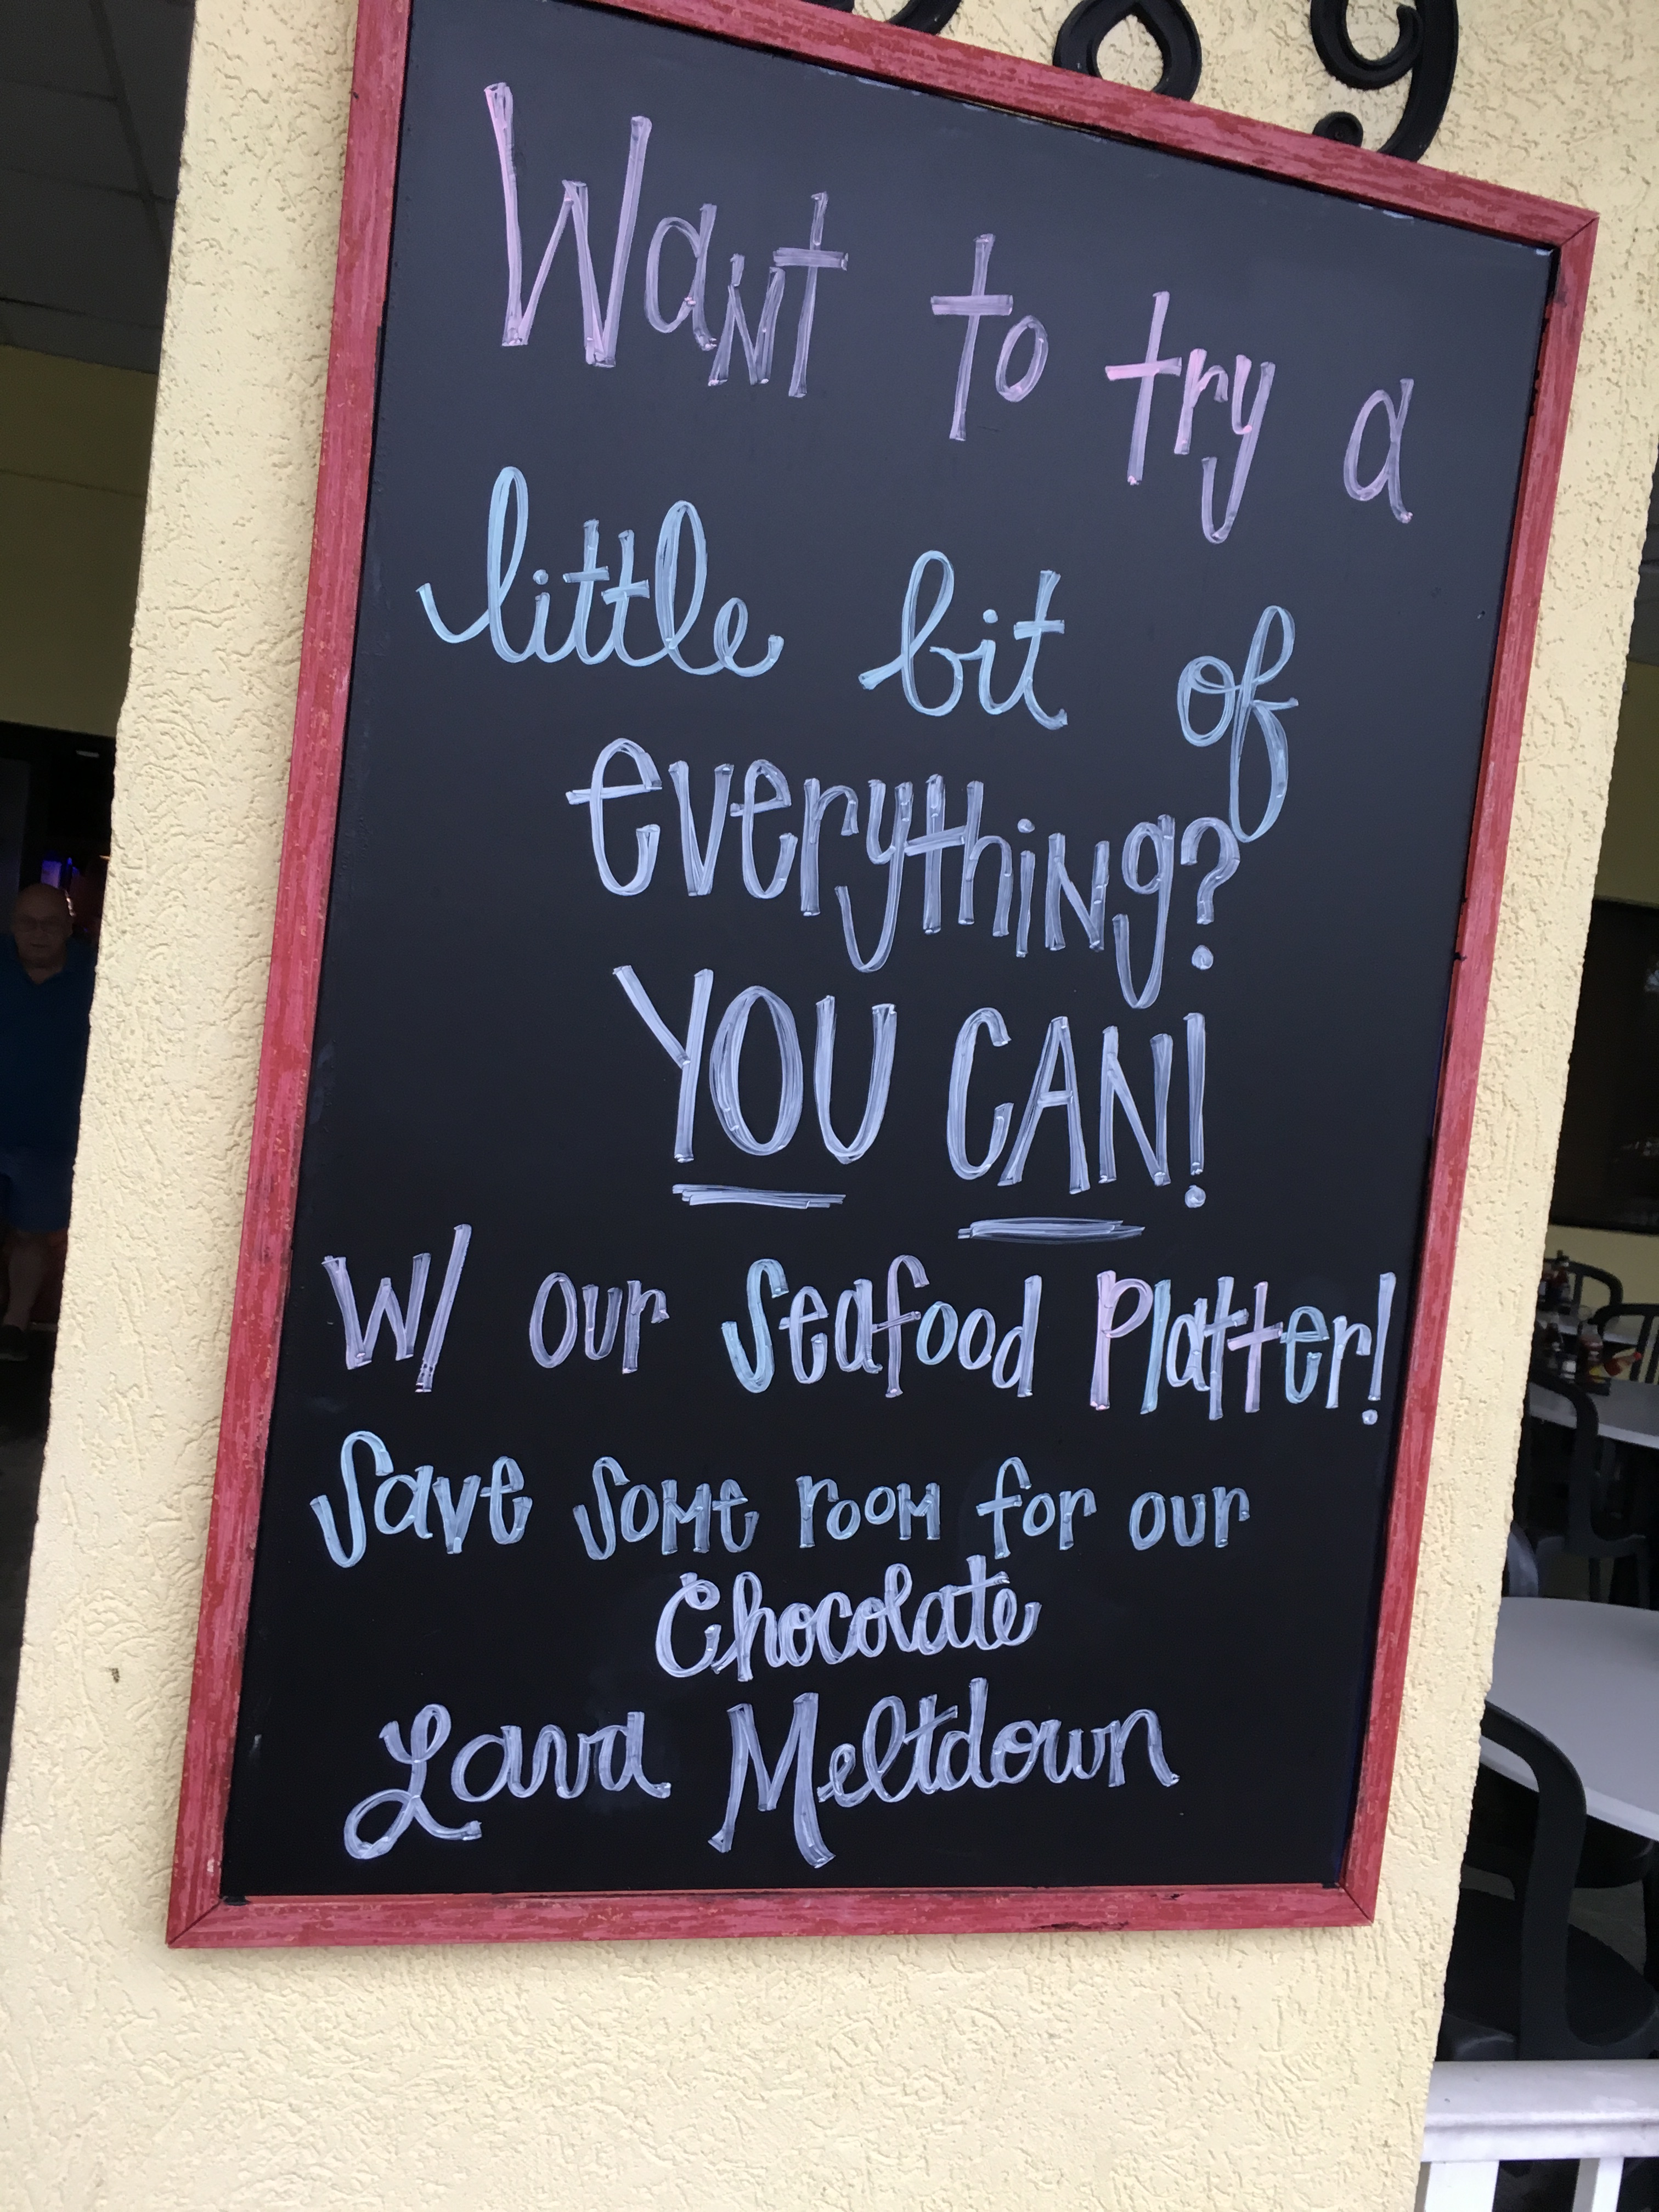 Want to try a
little bit of
everything?
YOU CAN!
W/ our Seafood Platter!
Save some room for our
Chocolate
Lava Meltdown